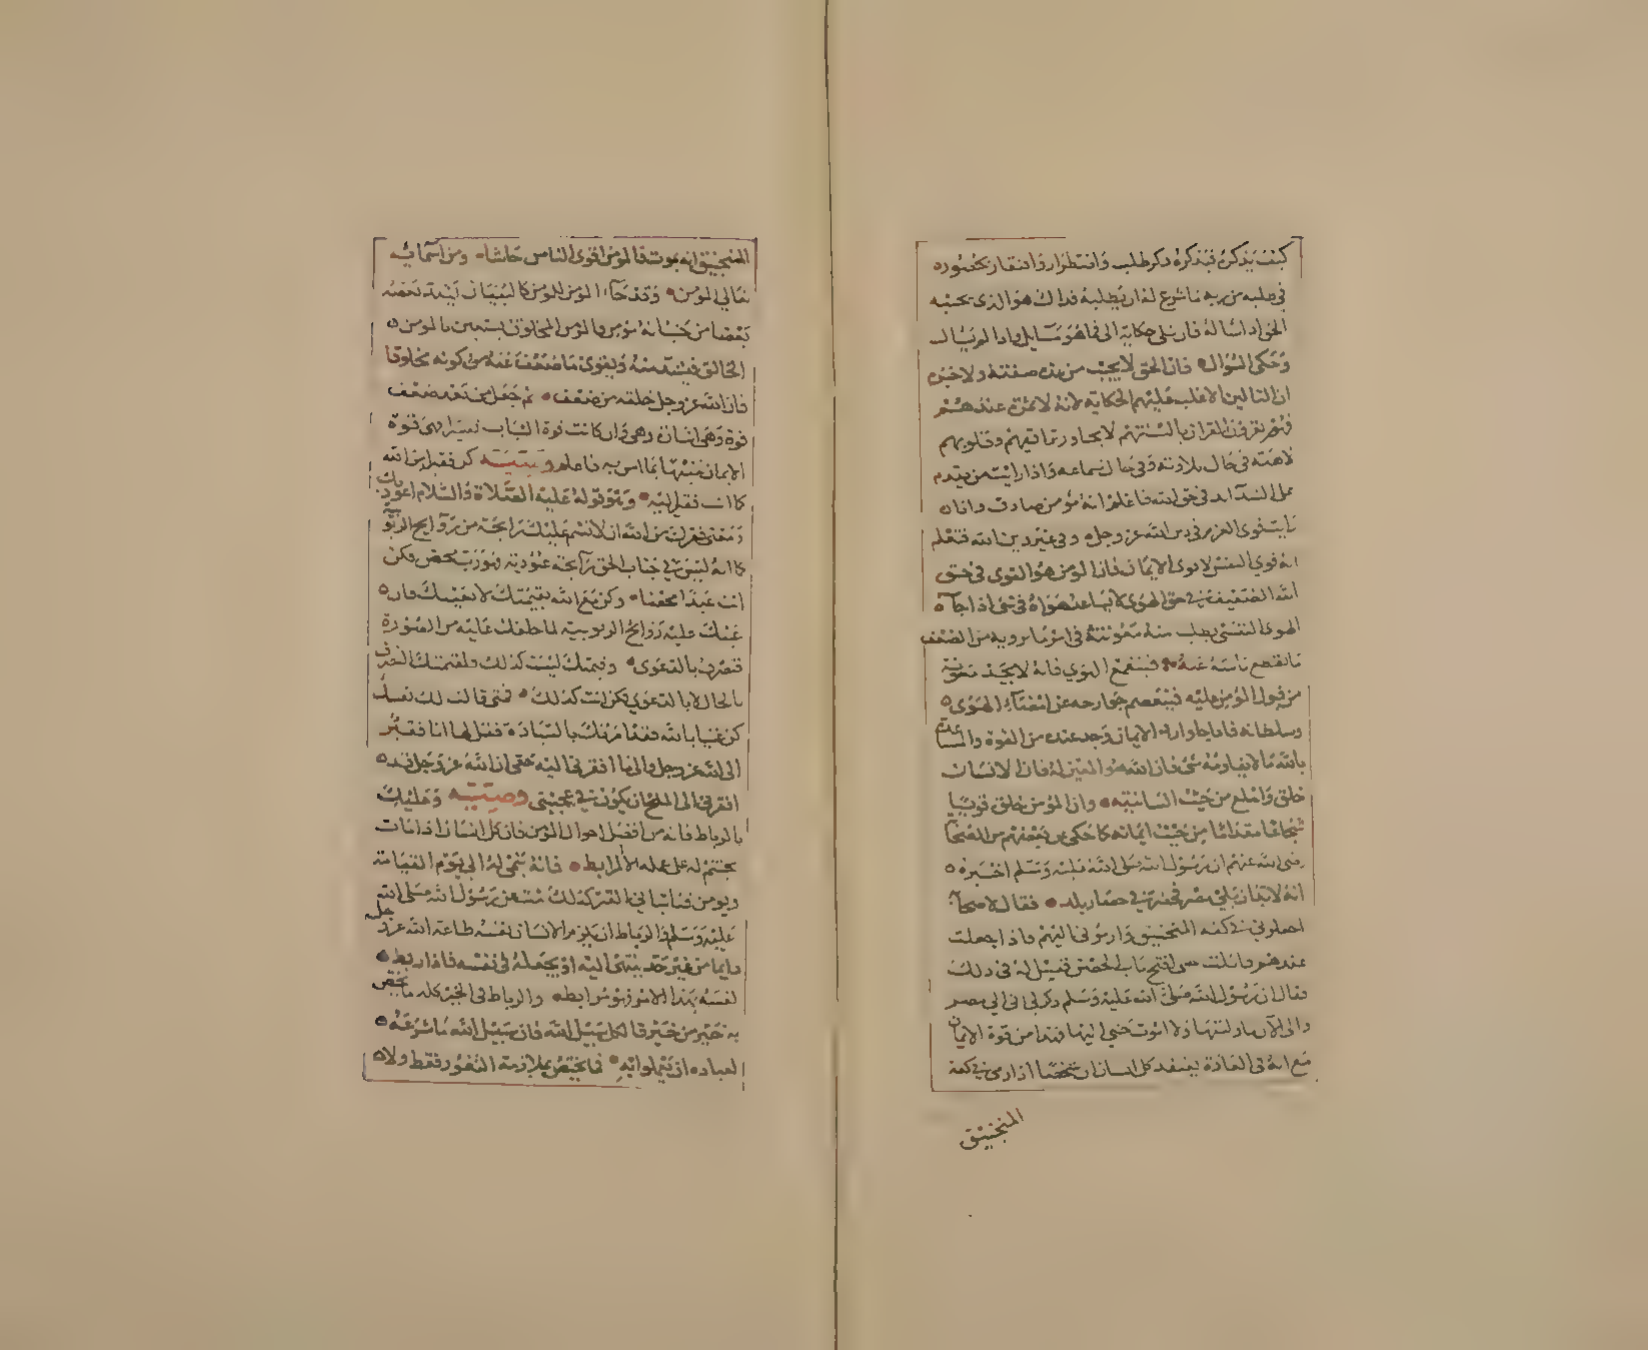 كيف يذكره فيذكره ذكر طلب واضطرار وافتقار بحضوره
في طلبه من ربه ما شرع له ان يطلبه فذاك هو الذي يجيبه
الحق اذا سأله فان تلي حكاية الى فما هو سايل واذا لم يسال
وحكى السؤال فان الحق لا يجيب من هذه صفته ولا خبر
ان التالين الاغلب عليهم الحكاية لانه لا ثمرة عندهم
فهم يقرؤن القران بالسنتهم لا يجاوز تراقيهم وقلوبهم
لاهية في حال تلاوته وفي حال سماعه واذا رايت من يقدم
على الشدايد في حق الله فاعلم انه مؤمن صادق واذا
رايت قوي العزم في دين الله عز وجل وفي غير دين الله فتعلم
انه قوي النفس لا قوي الايمان فاذا المومن هو القوي في حق
الله الضعيف في حق الهوى لا يساعد هواه في شي اذا جاءه
الهوى النفسي يطلب منه معونته في امر ما يرويه من الضعف
ما يقطع ياسه عنه فينقمع الهوي فانه لا يجد معونة
من قبول المؤمن عليه فيعصم جوارحه عن امضاء الهوى
وسلطانه فاذا جاء وارد الايمان وجد عنده من القوة والمساعدة
بالله ما لا يقاومه شئ فان الله هو المعين له فان الانسان
خلق واخلع من حيث انسانيته وان المؤمن خلق قويا
شجاعا مقداما من حيث ايمانه كما حكي عن بعضهم من الصحابة
رضي الله عنهم ان رسول الله صلى الله عليه وسلم اخبره
انه لا بد ان يلي مصر فحضر في حصار بلد فقال لاصحابه
اجعلوني في كفة المنجنيق وارموني اليهم فاذا حصلت
عندهم قاتلت حتى افتح باب الحصن فقيل له في ذلك
فقال ان رسول الله صلى الله عليه وسلم ذكر لي اني الي مصر
والى الآن ما وليتها ولا اموت حتى اليها فهذا من قوة الايمان
مع انه في العادة يعتقد كل انسان ان شخصا اذا رمي في كفة
المنجنيق
المنجنيق انه يموت فالمؤمن اقوى الناس جاشا ومن اسمايه
تعالى المؤمن وقد جاء المؤمن للمؤمن كالبنيان يشد بعضه
بعضا من حيث انه مؤمن فالمؤمن المخلوق يستعين بالمؤمن
الخالق فيشد منه ويقوي ما ضعف عنه من كونه مخلوقا
فان الله عز وجل خلقه من ضعف ثم جعل من بعد ضعف
قوة وهي اشارة وهي وان كانت قوة الشباب تفسيرا هي قوة
الايمان فنبهنا بما امر به فاعلم وصيـة كن فقيرا من الله
كما انت فقير اليه وهو قوله عليه الصلاة والسلام اعوذ بك
ومعنى فقرك من الله ان لا تشم عليك رايحة من روايح الربوبية
كما انه ليس في جناب الحق رايحة عبودية فهو رب محض فكن
انت عبدا محضا وكن مع الله بقيمتك لا بعينك فان
عينك عليه روايح الربوبية لما خلقك عليه من الصورة
فتصرف بالدعوى وقيمتك ليست كذلك ولقيمتك التصرف
بالحال لا بالدعوي فكن انت كذلك فمتى قالت لك نفسك
كن غنيا بالله فقد امرتك بالسيادة فقل لها انا فقير
الى الله عز وجل والى ما افقرني اليه حتى ان الله عز وجل قد
افقرني الى الملح ان يكون في عجيني وصيـة وعليك
بالرباط فانه من افضل احوال المؤمن فان كل انسان اذا مات
يختم له على عمله الا المرابط فانه ينمى له الى يوم القيامة
ويومن فتاني القبر كذلك ثبت عن رسول الله صلى الله
عليه وسلم والرباط ان يلزم الانسان نفسه طاعة الله عز وجل
دايما من غير حد ينتهي اليه او يجعله في نفسه فاذا ربط
نفسه بهذا الامر فهو مرابط والرباط في الخير كله ما يختص
به خير من خير فالكل سبيل الله فان سبيل الله ما شرعه
لعباده ان يعملوا به فما يختص بملازمة الثغور فقط ولا